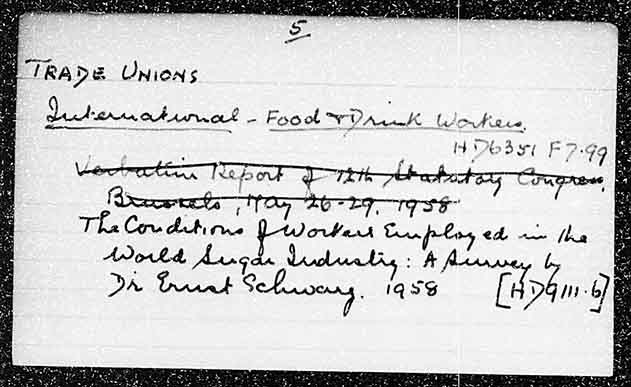 5
TRADE UNIONS
International - Food & Drink Workers.
HD6351 F7.99
Verbatim Report of 12th Statutory Congress,
Brussels, May 26-29, 1958
The Conditions of Workers Employed in the
World Sugar Industry: A Survey by
Dr Ernst Schwarz. 1958 [HD9111.6]